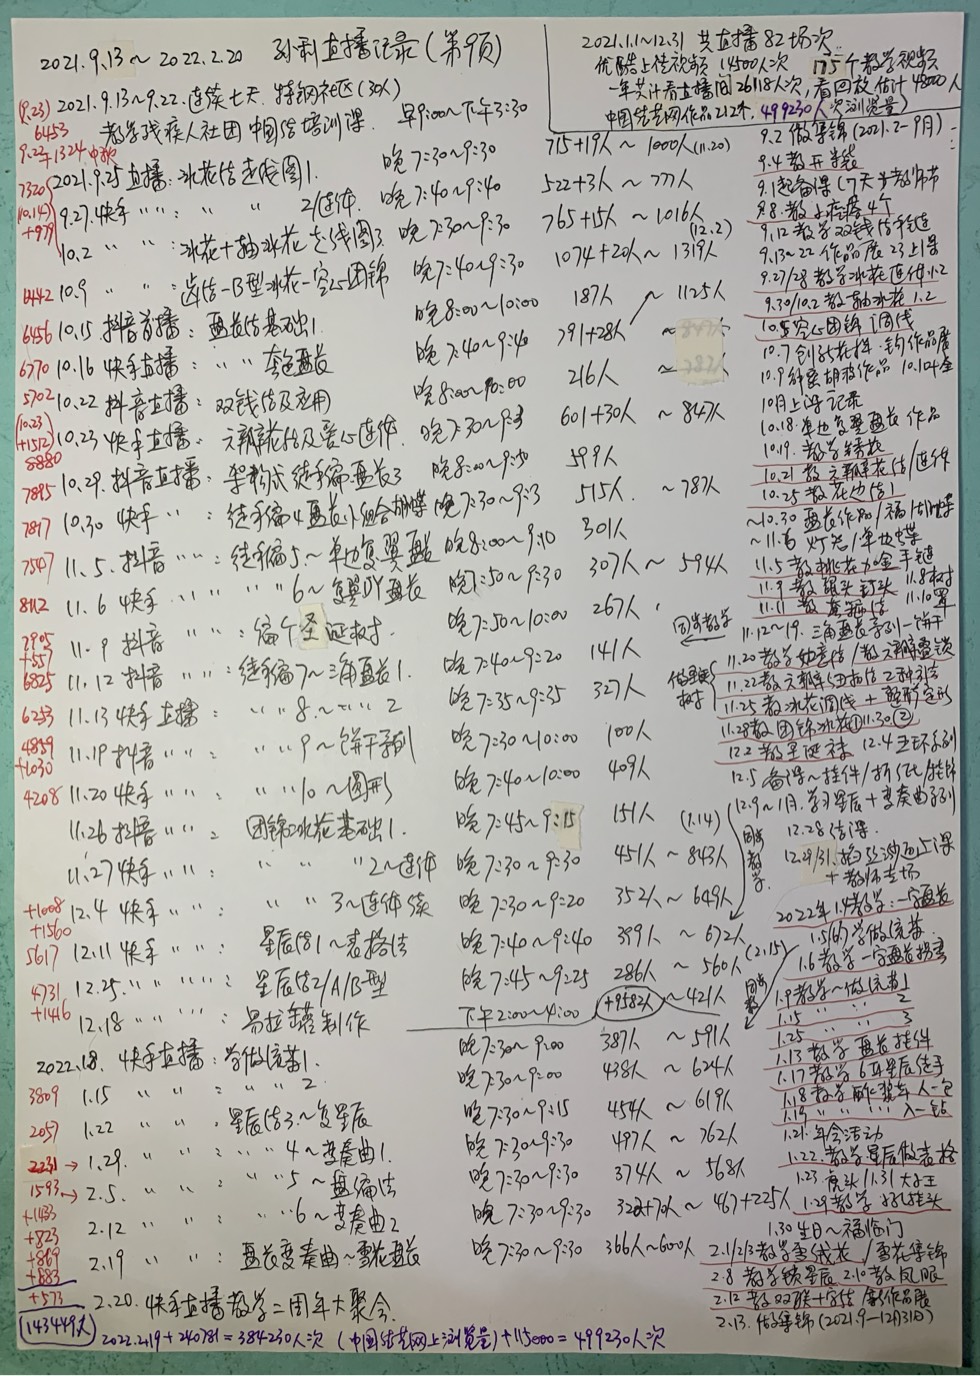 2021.9.13~2022.2.20 孙利直播记录(第9页)
2021.1.1~12.31 共直播82场次
优酷上传视频 14500人次 175个教学视频
一年共计看直播间26118人次,看回放估计48000人
中国结艺网作品212个,499230人次浏览量)
(9.23) 2021.9.13~9.22.连续七天 特钢社区(30人)
6453 教学残疾人社团中国结培训课. 早9:00~下午3:30
9.22+1324
7320 2021.9.25直播:冰花结走线图1. 晚7:30~9:30 715+19人~1000人(11.20)
(10.14) 9.27.快手 〃〃: 〃 〃 2/连体. 晚7:40~9:40 522+3人~777人
+979 10.2 〃 〃:冰花+抽冰花走线图3 晚7:30~9:30 765+15人~1016人
(12.2)
6442 10.9 〃 〃:齿结-B型冰花-空心团锦 晚7:40~9:30 1074+20人~1319人
6456 10.15 抖音首播:盘长结基础1. 晚8:00~10:00 187人 ~1125人
6770 10.16 快手直播: 〃 套色盘长 晚7:40~9:40 791+28人
5702 10.22 抖音直播:双钱结及应用 晚8:00~10:00 216人
(10.23) +1512 10.23 快手直播:六瓣花结及爱心连体. 晚7:30~9:3 601+30人 ~847人
8880
7895 10.29.抖音直播: 徒手编盘长3 晚8:00~9:50 599人
7817 10.30 快手 〃:徒手编4盘长小组合蝴蝶 晚7:30~9:3 515人. ~787人
7547 11.5. 抖音 〃〃:徒手编5~单边复翼盘长 晚8:00~9:10 301人
8112 11.6 快手 〃〃 〃〃6~复翼DIY盘长 晚7:50~9:30 307人~594人
7905 +557 11.9 抖音 〃〃:编个圣诞树. 晚7:50~10:00 267人
6825 11.12 抖音 〃〃:徒手编7~三角盘长1. 晚7:40~9:20 141人
6253 11.13 快手直播: 〃〃8.~〃〃2 晚7:35~9:35 327人
4859 +1030 11.19 抖音 〃〃: 〃〃9~饼干系列 晚7:30~10:00 100人
4208 11.20 快手 〃〃: 〃〃10~圆形 晚7:40~10:00 409人
11.26 抖音 〃〃: 团锦冰花基础1. 晚7:45~9:15 151人 (1.14)
11.27 快手 〃〃: 〃 〃 〃2~连体 晚7:30~9:30 451人~843人
+1008 12.4 快手 〃〃: 〃 〃3~连体续 晚7:30~9:20 352人~649人
+1560
5617 12.11 快手 〃〃: 星辰结1~表格法 晚7:40~9:40 399人~672人
(2.15)
4731 12.25. 〃〃 〃〃: 星辰结2/A/B型 晚7:45~9:25 286人~560人
+1416 12.18 〃〃 〃〃: 易拉罐制作 下午2:00~4:00 +9582人 ~421人
2022.1.8. 快手直播:学做流苏1. 晚7:30~9:00 387人~591人
3809 1.15 〃 〃: 〃 〃 〃 2. 晚7:30~9:00 438人~624人
2057 1.22 〃 〃:星辰结3.~复星辰 晚7:30~9:15 454人~619人
2231→ 1.29. 〃 〃: 〃〃4~变奏曲1. 晚7:30~9:30 497人~762人
1593→ 2.5. 〃 〃: 〃〃5~盘编法 晚7:30~9:30 374人~568人
+1433 2.12 〃 〃: 〃〃6~变奏曲2 晚7:30~9:30 328+7人~467+225人
+823
+869 2.19 〃 〃: 盘长变奏曲~雪花盘长 晚7:30~9:30 366人~600人
+883
+573 2.20. 快手直播教学二周年大聚会
(143449人) 2022.2.19+240781=384230人次(中国结艺网上浏览量)+115000=499230人次
9.2 做集锦(2021.2-9月)
9.4 教开半袋
9.1起备课(7天半教师节
9.8.教 4个
9.12 教学双钱结手链
9.13~22 作品展 23上号
9.27/28 教学冰花连体1.2
9.30/10.2 教抽冰花1.2
10.5空心团锦 调线
10.7 作品展
10.9 作品
10月上海记录
10.18.单边复翼盘长作品
10.19. 教学绣花
10.21 教六瓣花结/连体
10.25 教花边结1
~10.30 盘长作品/福/
~11.5 灯笼/单边蝶
11.5 教桃花加金手链
11.8树
11.10罩
同步教学
11.12~19. 三角盘长系列-饼干
11.20 教学如意结/教六瓣盘锁
11.25 教冰花调线+整形定形
11.28教团锦冰花①11.30②
12.2 教圣诞袜 12.4五环系列
12.5 备课~挂件/折
12.9~1月.学习星辰+变奏曲系列
同步教学
12.28 备课.
+教师专场
2022年1.4教学:一字盘长
1.5(6)学做流苏
1.6 教学一字盘长拐弯
1.9教学~做流苏1
1.15 〃 〃 2
1.25 〃 〃 3
1.13 教学盘长挂件
1.17教学6耳星辰徒手
1.21.年会活动
1.22.教学星辰做表格
1.23 虎头/1.31大王
1.30生日~福临门
2.1/2/3教学雪绒花/雪花集锦
2.8 教学锁星辰 2.10教凤眼
2.12 教双联十字结/新作品展
2.13. 做集锦(2021.9-12月31日)